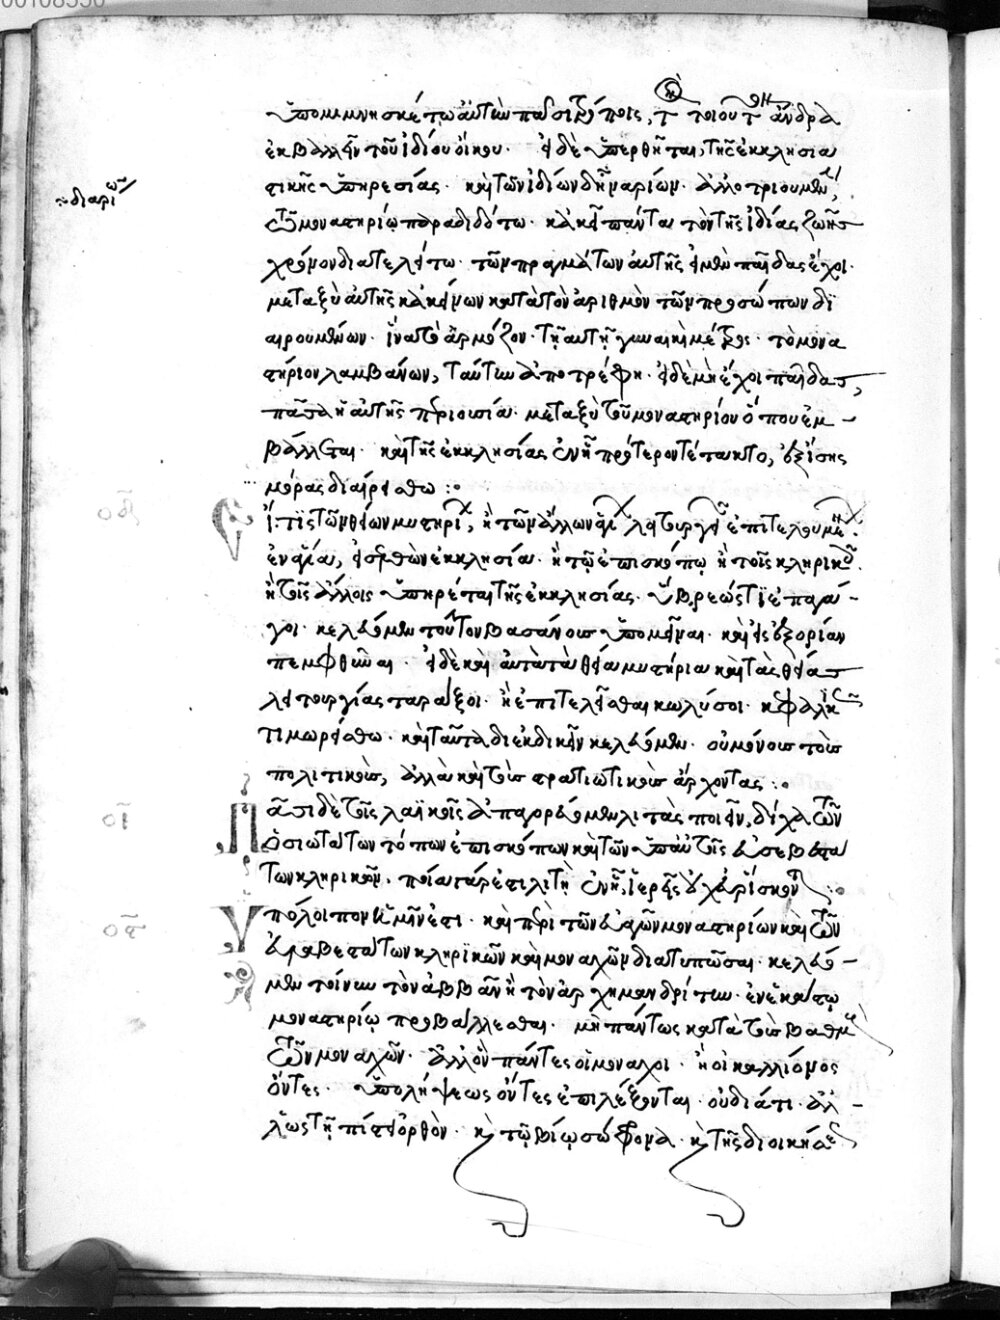 ὑπομιμνησκέτω αὐτὴν παρρησίᾳ τρίτοις, τ τοιοῦτ ἄνδρα
ἐκβάλλειν τοῦ ἰδίου οἴκου. εἰ δὲ ὑπερθῆται, τῆς ἐκκλησια
στικῆς ὑπηρεσίας. καὶ τῶν ἰδίων δηναρίων. ἀλλοτριουμεν
τῷ μοναστηρίῳ παραδιδότω. κἀκεῖ πάντα τὸν τῆς ἰδίας ζωῆς
: διαρί
χρόνον διατελείτω. τῶν πραγμάτων αὐτῆς εἰ μὲν παῖδας ἔχοι.
μεταξὺ αὐτῆς κἀκείνων κατὰ τὸν ἀριθμὸν τῶν προσώπων δι
αιρουμένων. ἵνα τὸ ἁρμόζον τῇ αὐτῇ γυναικὶ μέρος. τὸ μονα
στήριον λαμβάνων, ταύτην ἀποτρέφη. εἰ δὲ μὴ ἔχοι παῖδας,
πᾶσα ἡ αὐτῆς περιουσία. μεταξὺ τοῦ μοναστηρίου ὅπου ἐμ-
βάλλεται. καὶ τῆς ἐκκλησίας ἐν ᾗ πρότερον τέτακτο, ἐξίσης
μοίρας διαιρείσθω :
Εἴ τις τῶν θείων μυστηρί, ἢ τῶν ἄλλων ἁγί λειτουργ ἐπιτελουμέν.
ἐν ἁγία, εἰσελθὼν ἐκκλησία. ἢ τῷ ἐπισκόπῳ ἢ τοῖς κληρικοῖ.
ἢ τοῖς ἄλλοις ὑπηρέταις τῆς ἐκκλησίας. ὕβρεώς τι ἐπαγά-
γοι. κελεύομεν τοῦτον βασάνους ὑπομεῖναι. καὶ εἰς ἐξορίαν
πεμφθῆναι. εἰ δὲ καὶ αὐτὰ τὰ θεῖα μυστήρια καὶ τὰς θείας
λειτουργίας ταράξοι. ἢ ἐπιτελεῖσθαι κωλύσοι. κεφαλικ
τιμωρείσθω. καὶ ταῦτα διεκδικεῖν κελεύομεν. οὐ μόνους τοὺς
πολιτικούς, ἀλλὰ καὶ τοὺς στρατιωτικοὺς ἄρχοντας :
Πᾶσι δὲ τοῖς λαϊκοῖς ἀπαγορεύομεν λιτὰς ποιεῖν, δίχα τῶν
ὁσιωτάτων τόπων ἐπισκόπων καὶ τῶν ὑπ' αὐτοῖς εὐσεβεστά
των κληρικῶν. ποία γάρ ἐστι λιτὴ ἐν ᾗ, ἱερεῖς οὐχ εὑρίσκον :
Ὑπόλοιπον ἡμῖν ἐστι. καὶ περὶ τῶν εὐαγῶν μοναστηρίων καὶ τῶν
εὐλαβεστάτων κληρικῶν καὶ μοναχῶν διατυπῶσαι. κελεύο-
μεν τοίνυν τὸν ἀββᾶν ἢ τὸν ἀρχιμανδρίτην. ἐν ἑκάστῳ
μοναστηρίῳ προβάλλεσθαι. μὴ πάντως κατὰ τοὺς βαθμ
τῶν μοναχῶν. ἀλλ' ὃν πάντες οἱ μοναχοι. ἢ οἱ καλλίονος
ὄντες. ὑπολήψεως ὄντες ἐπιλέξονται. οὐ διά τι. ἀλ-
λως τῇ πίστει ὀρθὸν. κ τῷ βίῳ σώφρονα. κ τῆς διοικήσε